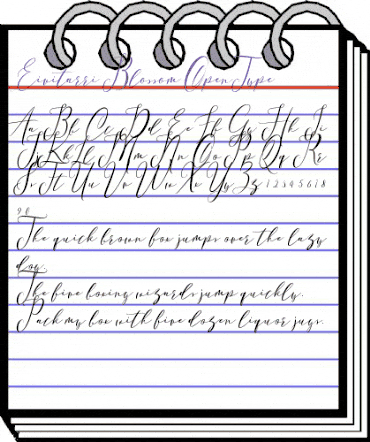 Einttarri Blossom OpenType
Aa Bb Cc Dd Ee Ff Gg Hh Ii
Jj Kk Ll Mm Nn Oo Pp Qq Rr
Ss Tt Uu Vv Ww Xx Yy Zz 12345678
90
The quick brown fox jumps over the lazy
dog.
The five boxing wizards jump quickly.
Pack my box with five dozen liquor jugs.